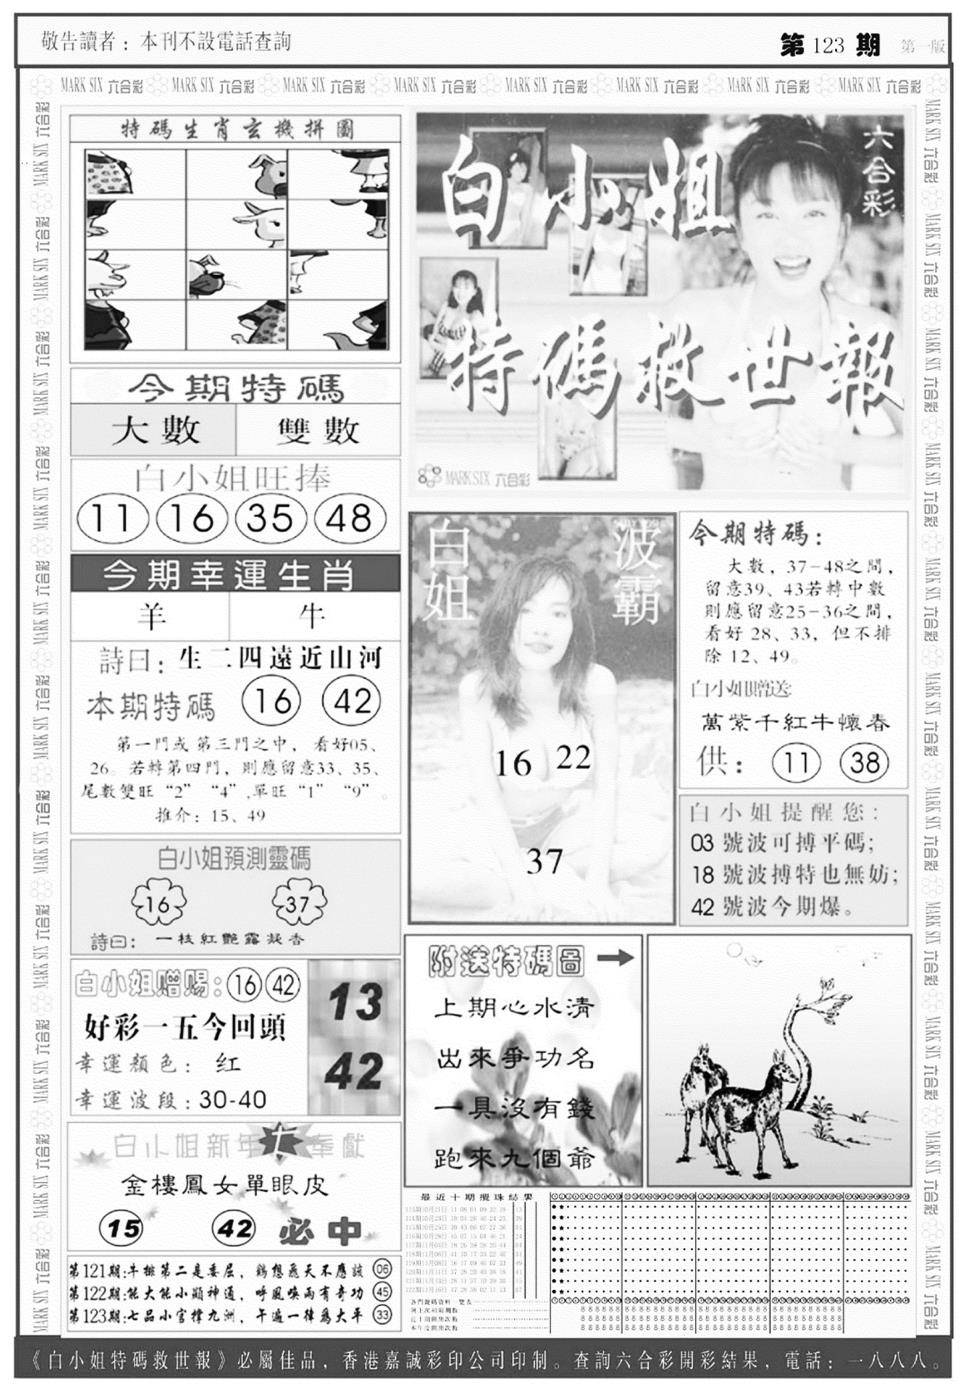 敬告讀者：本刊不設電話查詢
第 123 期
第一版
MARK SIX 六合彩 MARK SIX 六合彩 MARK SIX 六合彩 MARK SIX 六合彩 MARK SIX 六合彩 MARK SIX 六合彩 MARK SIX 六合彩 MARK SIX 六合彩
特碼生肖玄機拼圖
六合彩
白小姐
特碼救世報
MARK SIX 六合彩
今期特碼
大數 雙數
白小姐旺捧
11 16 35 48
今期幸運生肖
羊 牛
詩曰：生二四遠近山河
本期特碼 16 42
第一門或第三門之中，看好05、
26。若轉第四門，則應留意33、35、
尾數雙旺“2”“4”,單旺“1”“9”。
推介：15、49
白小姐預測靈碼
16 37
詩曰：一枝紅艷露凝香
白小姐赠赐：16 42
好彩一五今回頭
幸運顏色：红
幸運波段：30-40
13
42
白小姐新年大奉獻
金樓鳳女單眼皮
15 42 必中
第121期:牛排第二是委屈，鷄想飛天不應該 06
第122期:能大能小顯神通，呼風喚雨有奇功 45
第123期:七品小官擇九洲，午逼一律爲大平 33
白姐
波霸
16 22
37
今期特碼：
大數，37-48之間，
留意39、43若轉中數
則應留意25-36之間，
看好 28、33，但不排
除 12、49。
白小姐贈送:
萬紫千紅牛懷春
供：11 38
白小姐提醒您：
03 號波可搏平碼；
18 號波搏特也無妨；
42 號波今期爆。
附送特碼圖
上期心水清
出來爭功名
一具沒有錢
跑來九個爺
最近十期攪珠結果
《白小姐特碼救世報》必屬佳品，香港嘉誠彩印公司印制。查詢六合彩開彩結果，電話：一八八八。